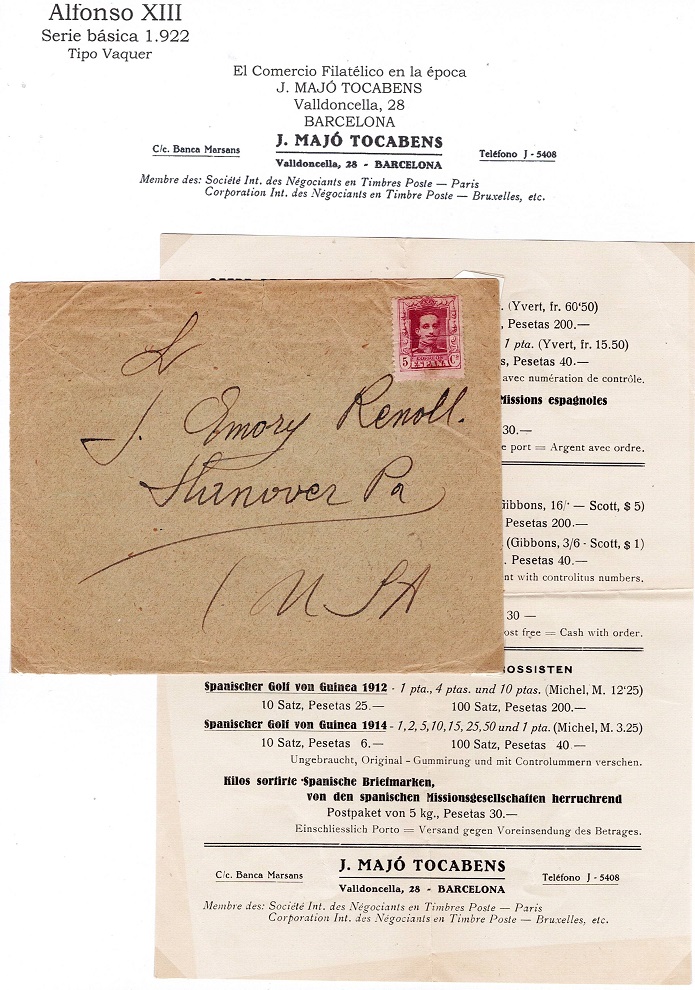 Alfonso XIII
Serie básica 1.922
Tipo Vaquer
El Comercio Filatélico en la época
J. MAJÓ TOCABENS
Valldoncella, 28
BARCELONA
J. MAJÓ TOCABENS
C/c. Banca Marsans
Teléfono J - 5408
Valldoncella, 28 - BARCELONA
Membre des: Société Int. des Négociants en Timbres Poste — Paris
Corporation Int. des Négociants en Timbre Poste — Bruxelles, etc.
5 Cs
ESPAÑA
J. Emory Renoll.
Hanover Pa
(USA
. (Yvert, fr. 60'50)
, Pesetas 200.—
1 pta. (Yvert, fr. 15.50)
s, Pesetas 40.—
avec numération de contrôle.
Missions espagnoles
30.—
e port = Argent avec ordre.
Gibbons, 16/- — Scott, $ 5)
Pesetas 200.—
(Gibbons, 3/6 - Scott, $ 1)
. Pesetas 40.—
nt with controlitus numbers.
30 —
ost free = Cash with order.
OSSISTEN
Spanischer Golf von Guinea 1912 - 1 pta., 4 ptas. und 10 ptas. (Michel, M. 12'25)
10 Satz, Pesetas 25.— 100 Satz, Pesetas 200.—
Spanischer Golf von Guinea 1914 - 1, 2, 5, 10, 15, 25, 50 und 1 pta. (Michel, M. 3.25)
10 Satz, Pesetas 6.— 100 Satz, Pesetas 40 —
Ungebraucht, Original - Gummirung und mit Controlummern verschen.
Kilos sortirte Spanische Briefmarken,
von den spanischen Missionsgesellschaften herruchrend
Postpaket von 5 kg., Pesetas 30.—
Einschliesslich Porto = Versand gegen Voreinsendung des Betrages.
J. MAJÓ TOCABENS
C/c. Banca Marsans
Teléfono J - 5408
Valldoncella, 28 - BARCELONA
Membre des: Société Int. des Négociants en Timbres Poste — Paris
Corporation Int. des Négociants en Timbre Poste — Bruxelles, etc.